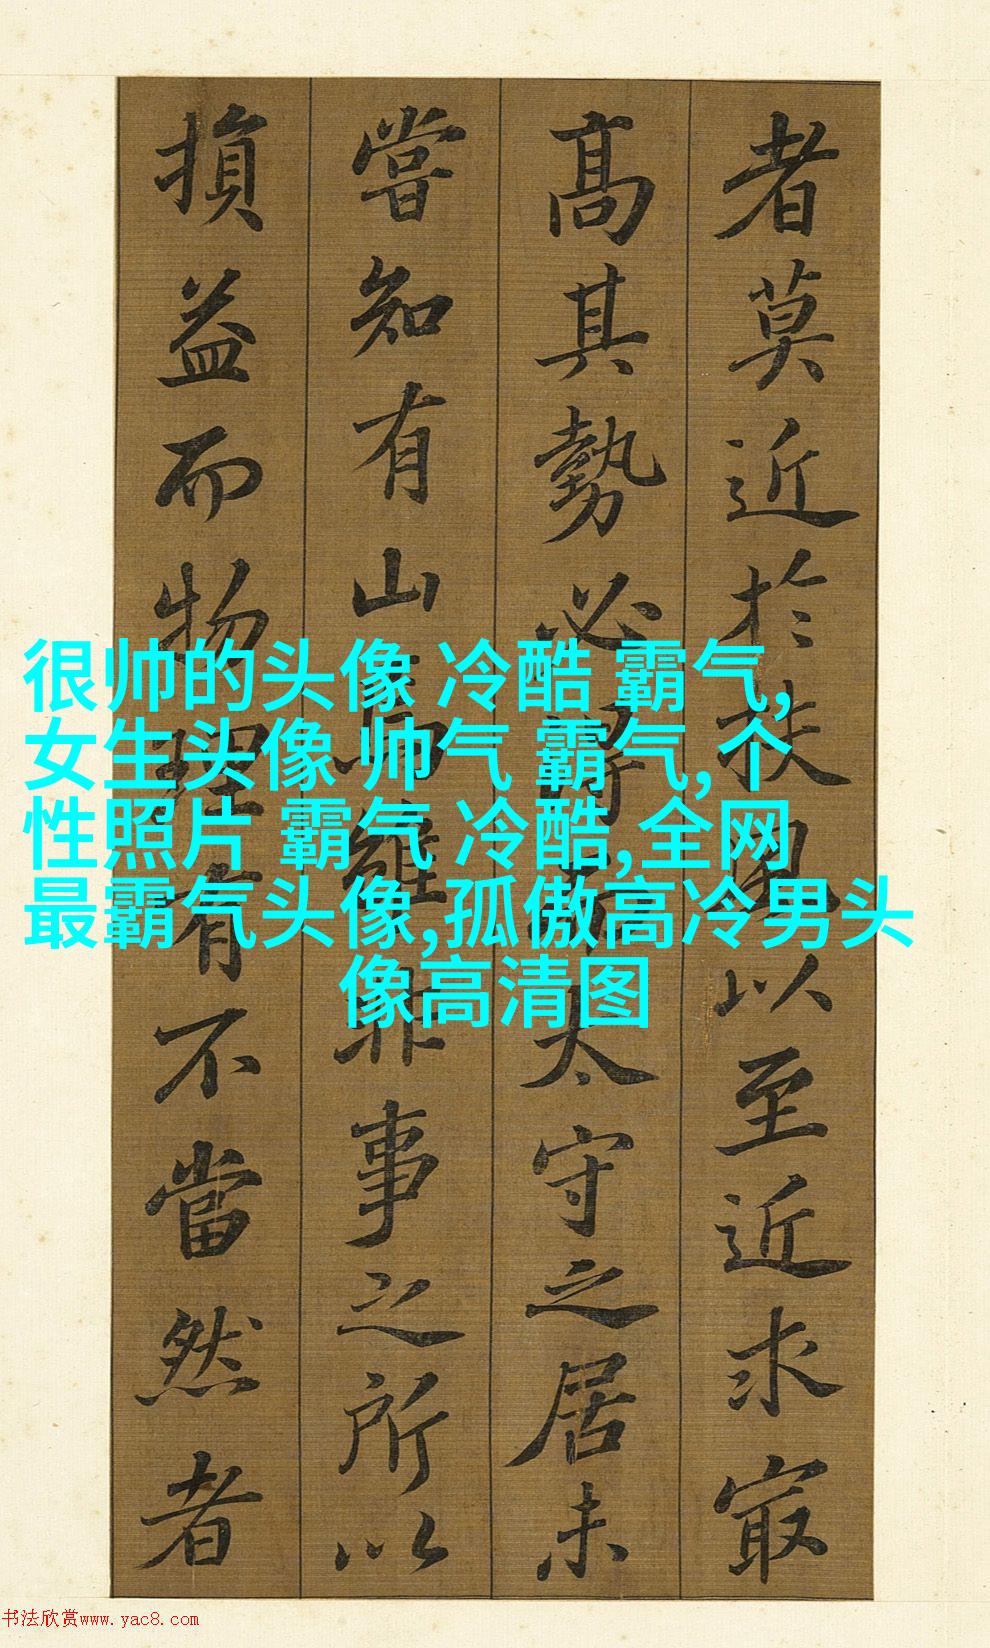 者莫近於扶風以至近求㝡
髙其勢必得而太守之居未
嘗知有山焉雖非事之所以
損益而物理有不當然者
很帅的头像 冷酷 霸气,
女生头像 帅气 霸气,个
性照片 霸气 冷酷,全网
最霸气头像,孤傲高冷男头
像高清图
书法欣赏www.yac8.com